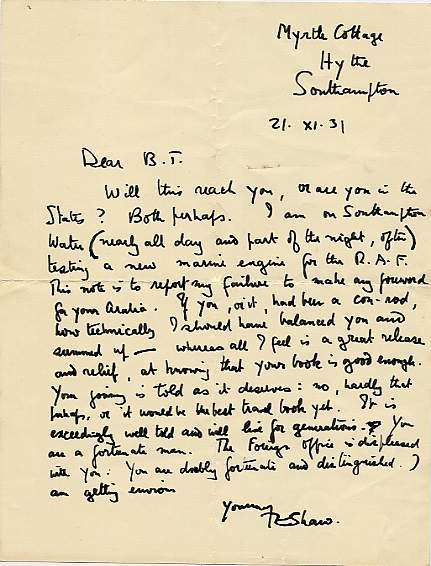 Myrtle Cottage
Hythe
Southampton
21. XI. 31
Dear B.T.
Will this reach you, or are you in the
States? Both perhaps. I am on Southampton
Water (nearly all day and part of the night, often)
testing a new marine engine for the R.A.F.
This note is to report my failure to make any foreword
for your Arabia. If you, or it, had been a con-rod,
how technically I should have balanced you and
summed up — whereas all I feel is a great release
and relief, at knowing that your book is good enough.
Your journey is told as it deserves: no, hardly that
perhaps, or it would be the best travel book yet. It is
exceedingly well told and will live for generations. You
are a fortunate man. The Foreign Office is displeased
with you: You are doubly fortunate and distinguished. I
am getting envious
Yours
TEShaw.